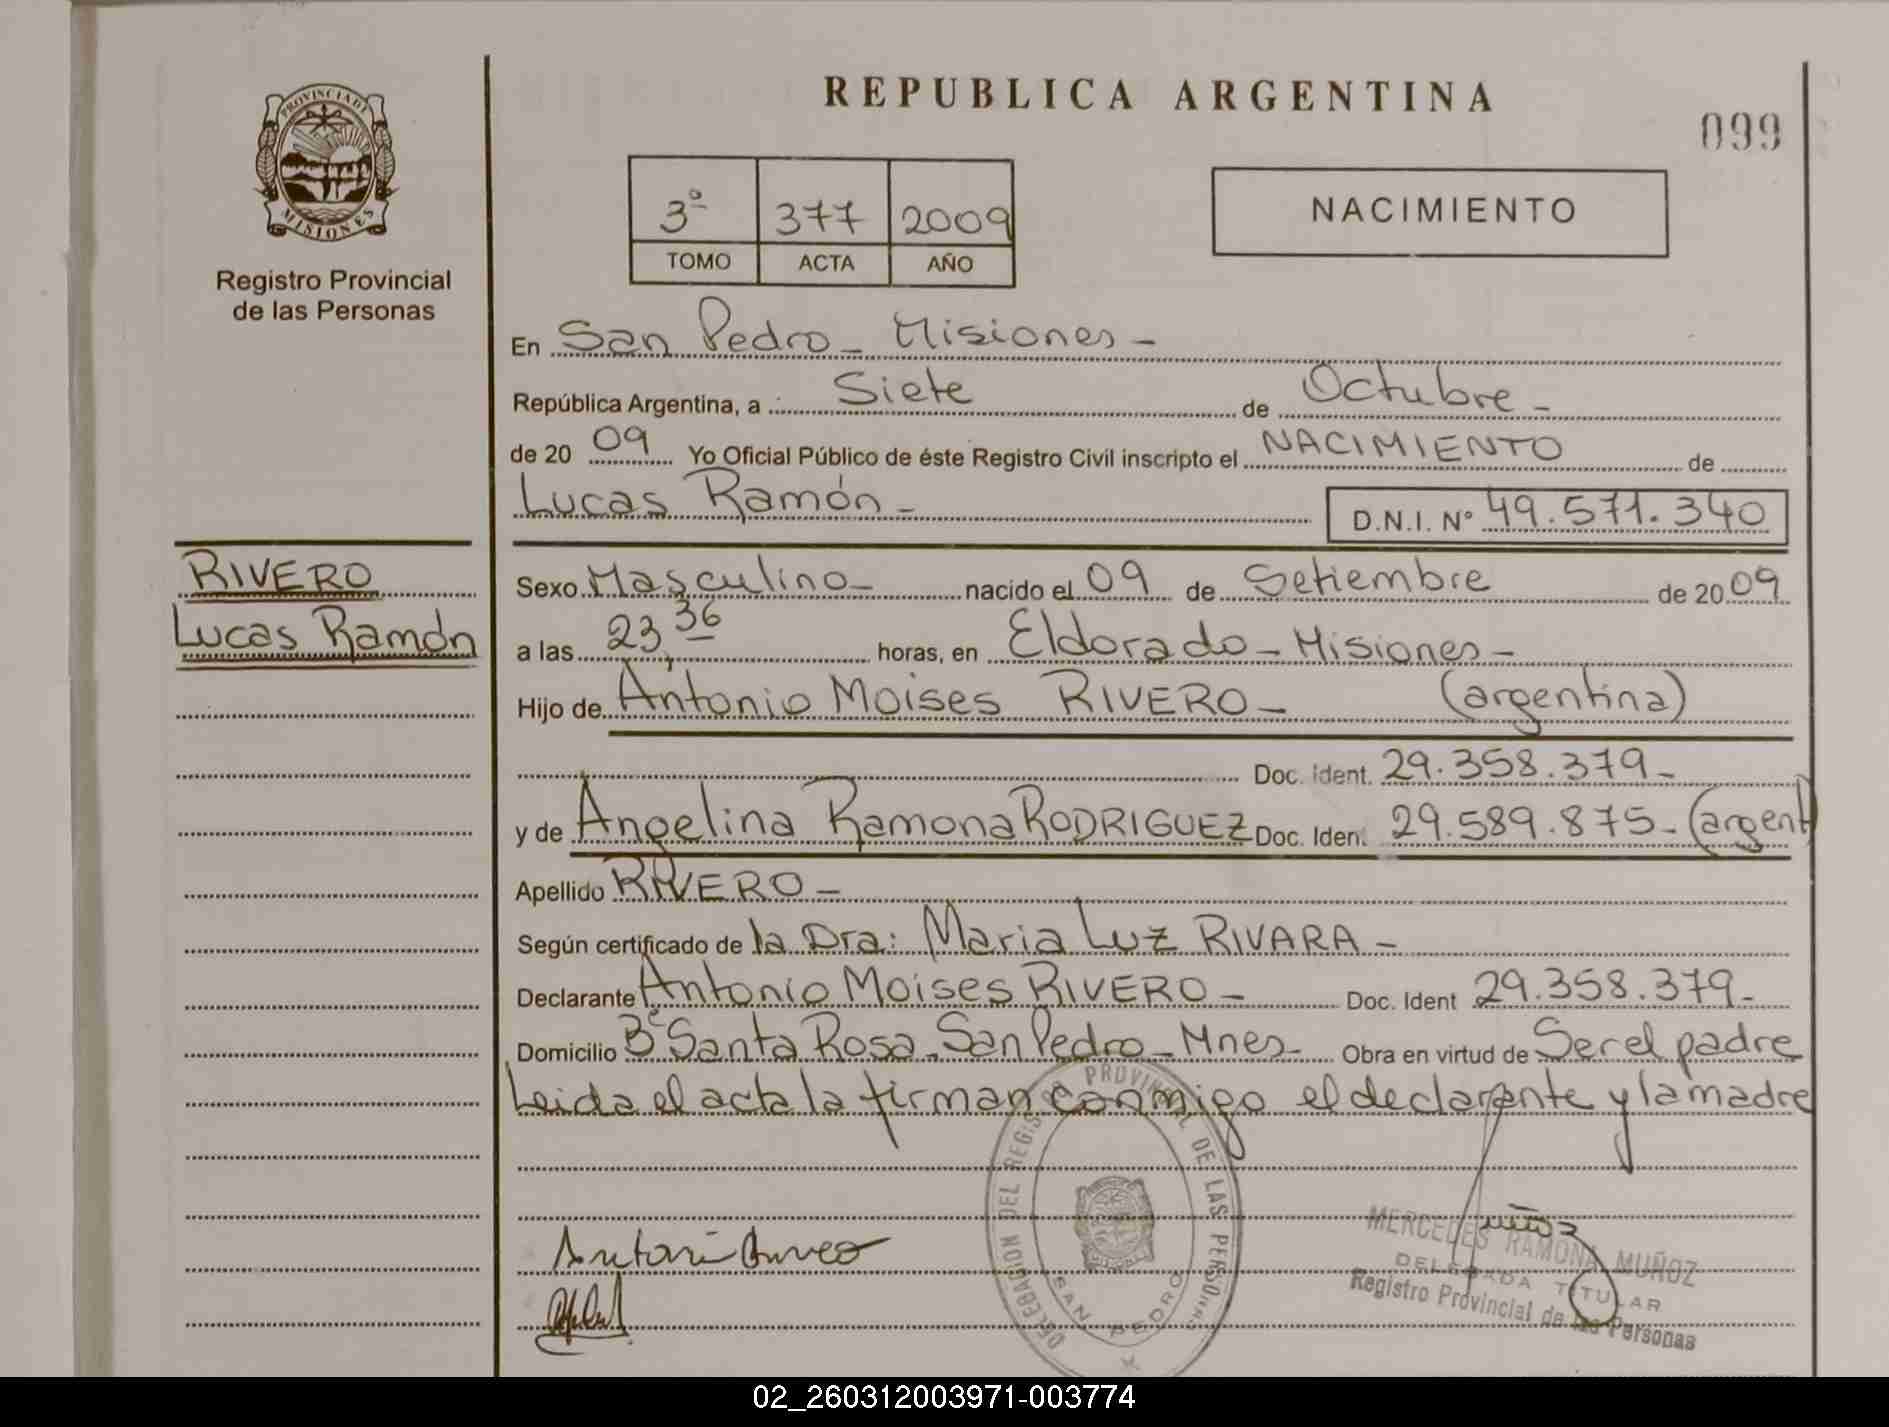 REPUBLICA ARGENTINA
099
PROVINCIA DE
MISIONES
Registro Provincial
de las Personas
3º 377 2009
TOMO ACTA AÑO
NACIMIENTO
En San Pedro - Misiones -
República Argentina, a Siete de Octubre -
de 20 09 Yo Oficial Público de éste Registro Civil inscripto el NACIMIENTO de
Lucas Ramón - D.N.I. Nº 49.571.340
RIVERO
Lucas Ramón
Sexo Masculino - nacido el 09 de Setiembre de 20 09
a las 23,36 horas, en Eldorado - Misiones -
Hijo de Antonio Moises RIVERO - (argentina)
Doc. Ident. 29.358.379 -
y de Angelina Ramona RODRIGUEZ Doc. Iden. 29.589.875 - (argent
Apellido RIVERO -
Según certificado de la Dra: Maria Luz RIVARA -
Declarante Antonio Moises RIVERO - Doc. Ident 29.358.379 -
Domicilio Bº Santa Rosa - San Pedro - Mnes - Obra en virtud de Ser el padre
Leida el acta la firman conmigo el declarante y la madre
DELEGACION DEL REGISTRO PROVINCIAL DE LAS PERSONAS
SAN PEDRO
MERCEDES RAMONA MUÑOZ
DELEGADA TITULAR
Registro Provincial de las Personas
02_260312003971-003774